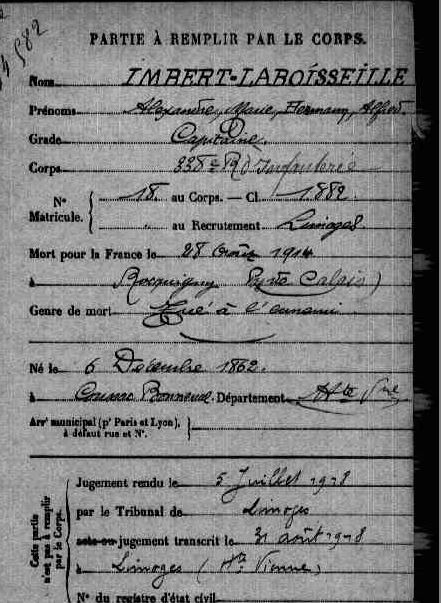 PARTIE À REMPLIR PAR LE CORPS.
Nom IMBERT-LABOISSEILLE
Prénoms Alexandre, Marie, Hermann, Alfred.
Grade Capitaine.
Corps 338e Rt d'Infanterie
N° Matricule. { 18. au Corps. — Cl. 1.882
" au Recrutement Limoges
Mort pour la France le 28 Août 1914
à Rocquigny Pas de Calais)
Genre de mort Tué à l'ennemi
Né le 6 Décembre 1862.
à Bonneval Département Hte Vne
Arr' municipal (p' Paris et Lyon), à défaut rue et N°.
Cette partie n'est pas à remplir par le Corps.
Jugement rendu le 5 Juillet 1918
par le Tribunal de Limoges
acte ou jugement transcrit le 31 août 1918
à Limoges (Hte Vienne)
N° du registre d'état civil